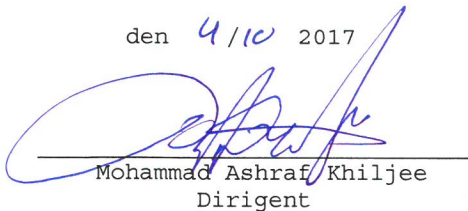 den 4/10 2017
Mohammad Ashraf Khiljee
Dirigent